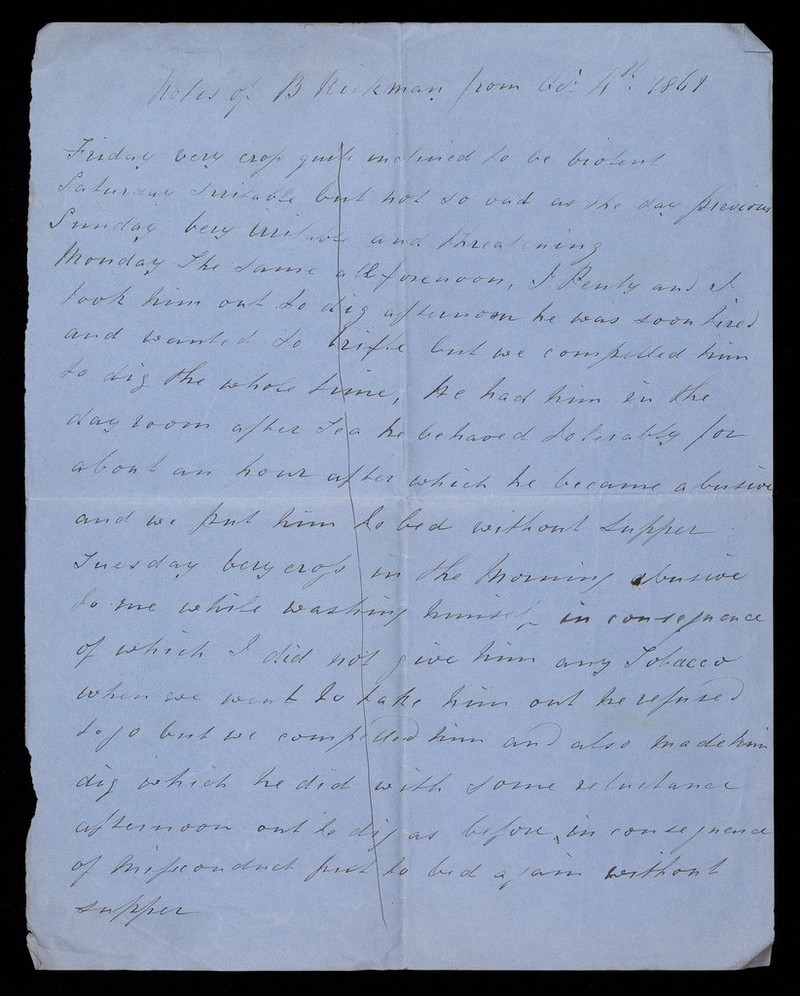 Notes of B Rickman from Oct 4th 1861
Friday very cross quite inclined to be violent
Saturday Irritable but not so bad as the day previous
Sunday very irritable and threatening
Monday The same all forenoon, J Penty and I
took him out to dig afternoon he was soon tired
and wanted to trifle but we compelled him
to dig the whole time, We had him in the
day room after Tea he behaved tolerably for
about an hour after which he became abusive
and we put him to bed without supper
Tuesday very cross in the Morning abusive
to me while washing himself in consequence
of which I did not give him any Tobacco
when we went to take him out he refused
to go but we compelled him and also made him
dig which he did with some reluctance
afternoon out to dig as before, in consequence
of Misconduct put to bed again without
supper